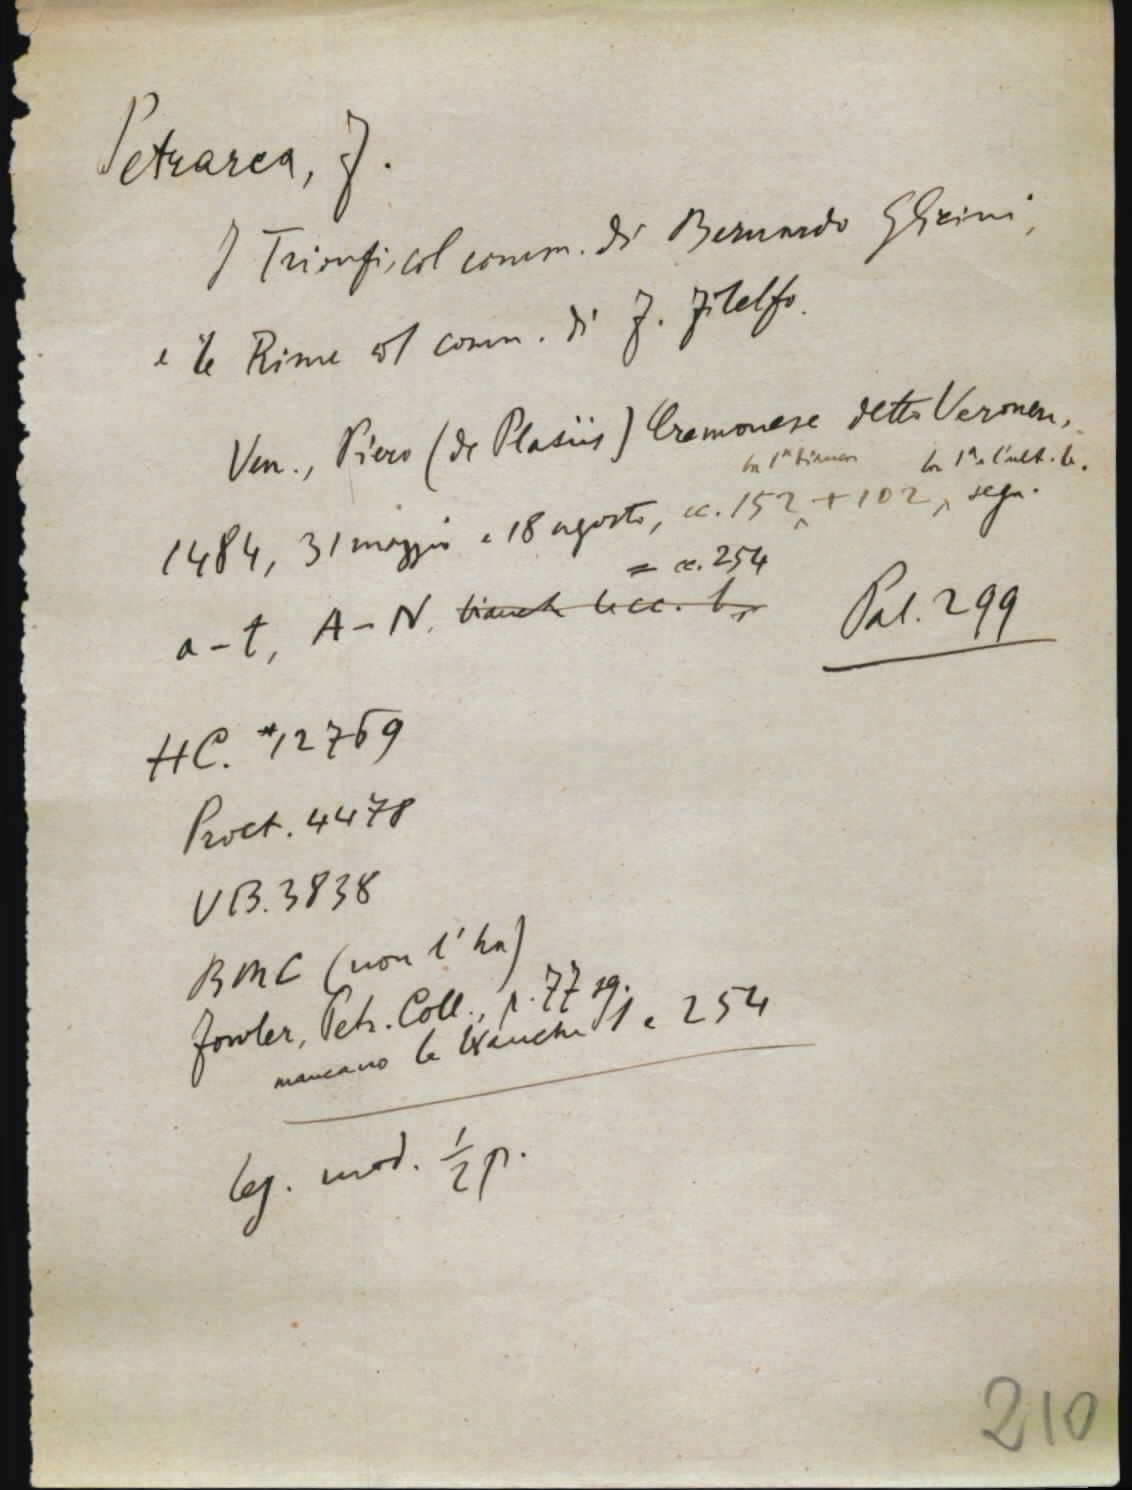 Petrarca, F.
I Trionfi, col comm. di Bernardo Glicini,
e le Rime col comm. di F. Filelfo.
Ven., Piero (de Plasiis) Cremonese detto Veronese,
la 1ª bianca la 1ª e l'ult. b.
1484, 31 maggio e 18 agosto, cc. 152 + 102, segn.
= cc. 254
a-t, A-N. bianche le cc.
Pal. 299
HC. *12769
Proct. 4478
VB. 3838
BMC (non l'ha)
Fowler, Petr. Coll., p. 77 sg.
mancano le bianche 1 e 254
leg. mod. ½ p.
210